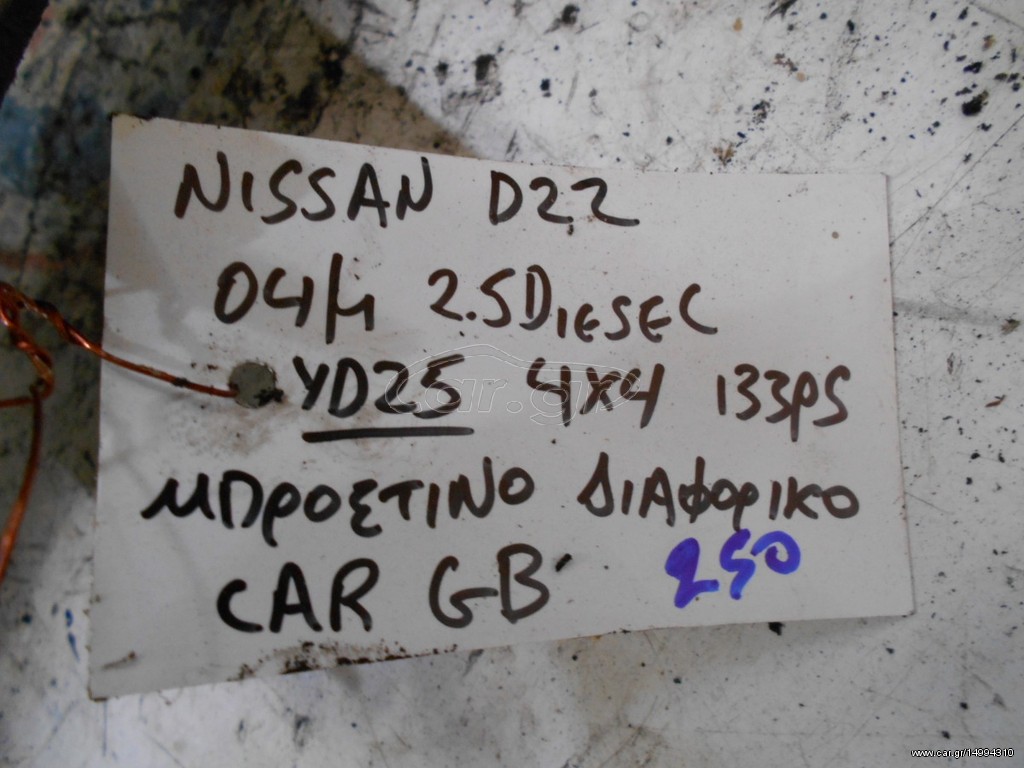 NISSAN D22
04/Μ 2.5DIESEL
YD25 4X4 133PS
ΜΠΡΟΣΤΙΝΟ ΔΙΑΦΟΡΙΚΟ
CAR GB' 250
car.gr
www.car.gr/14994310